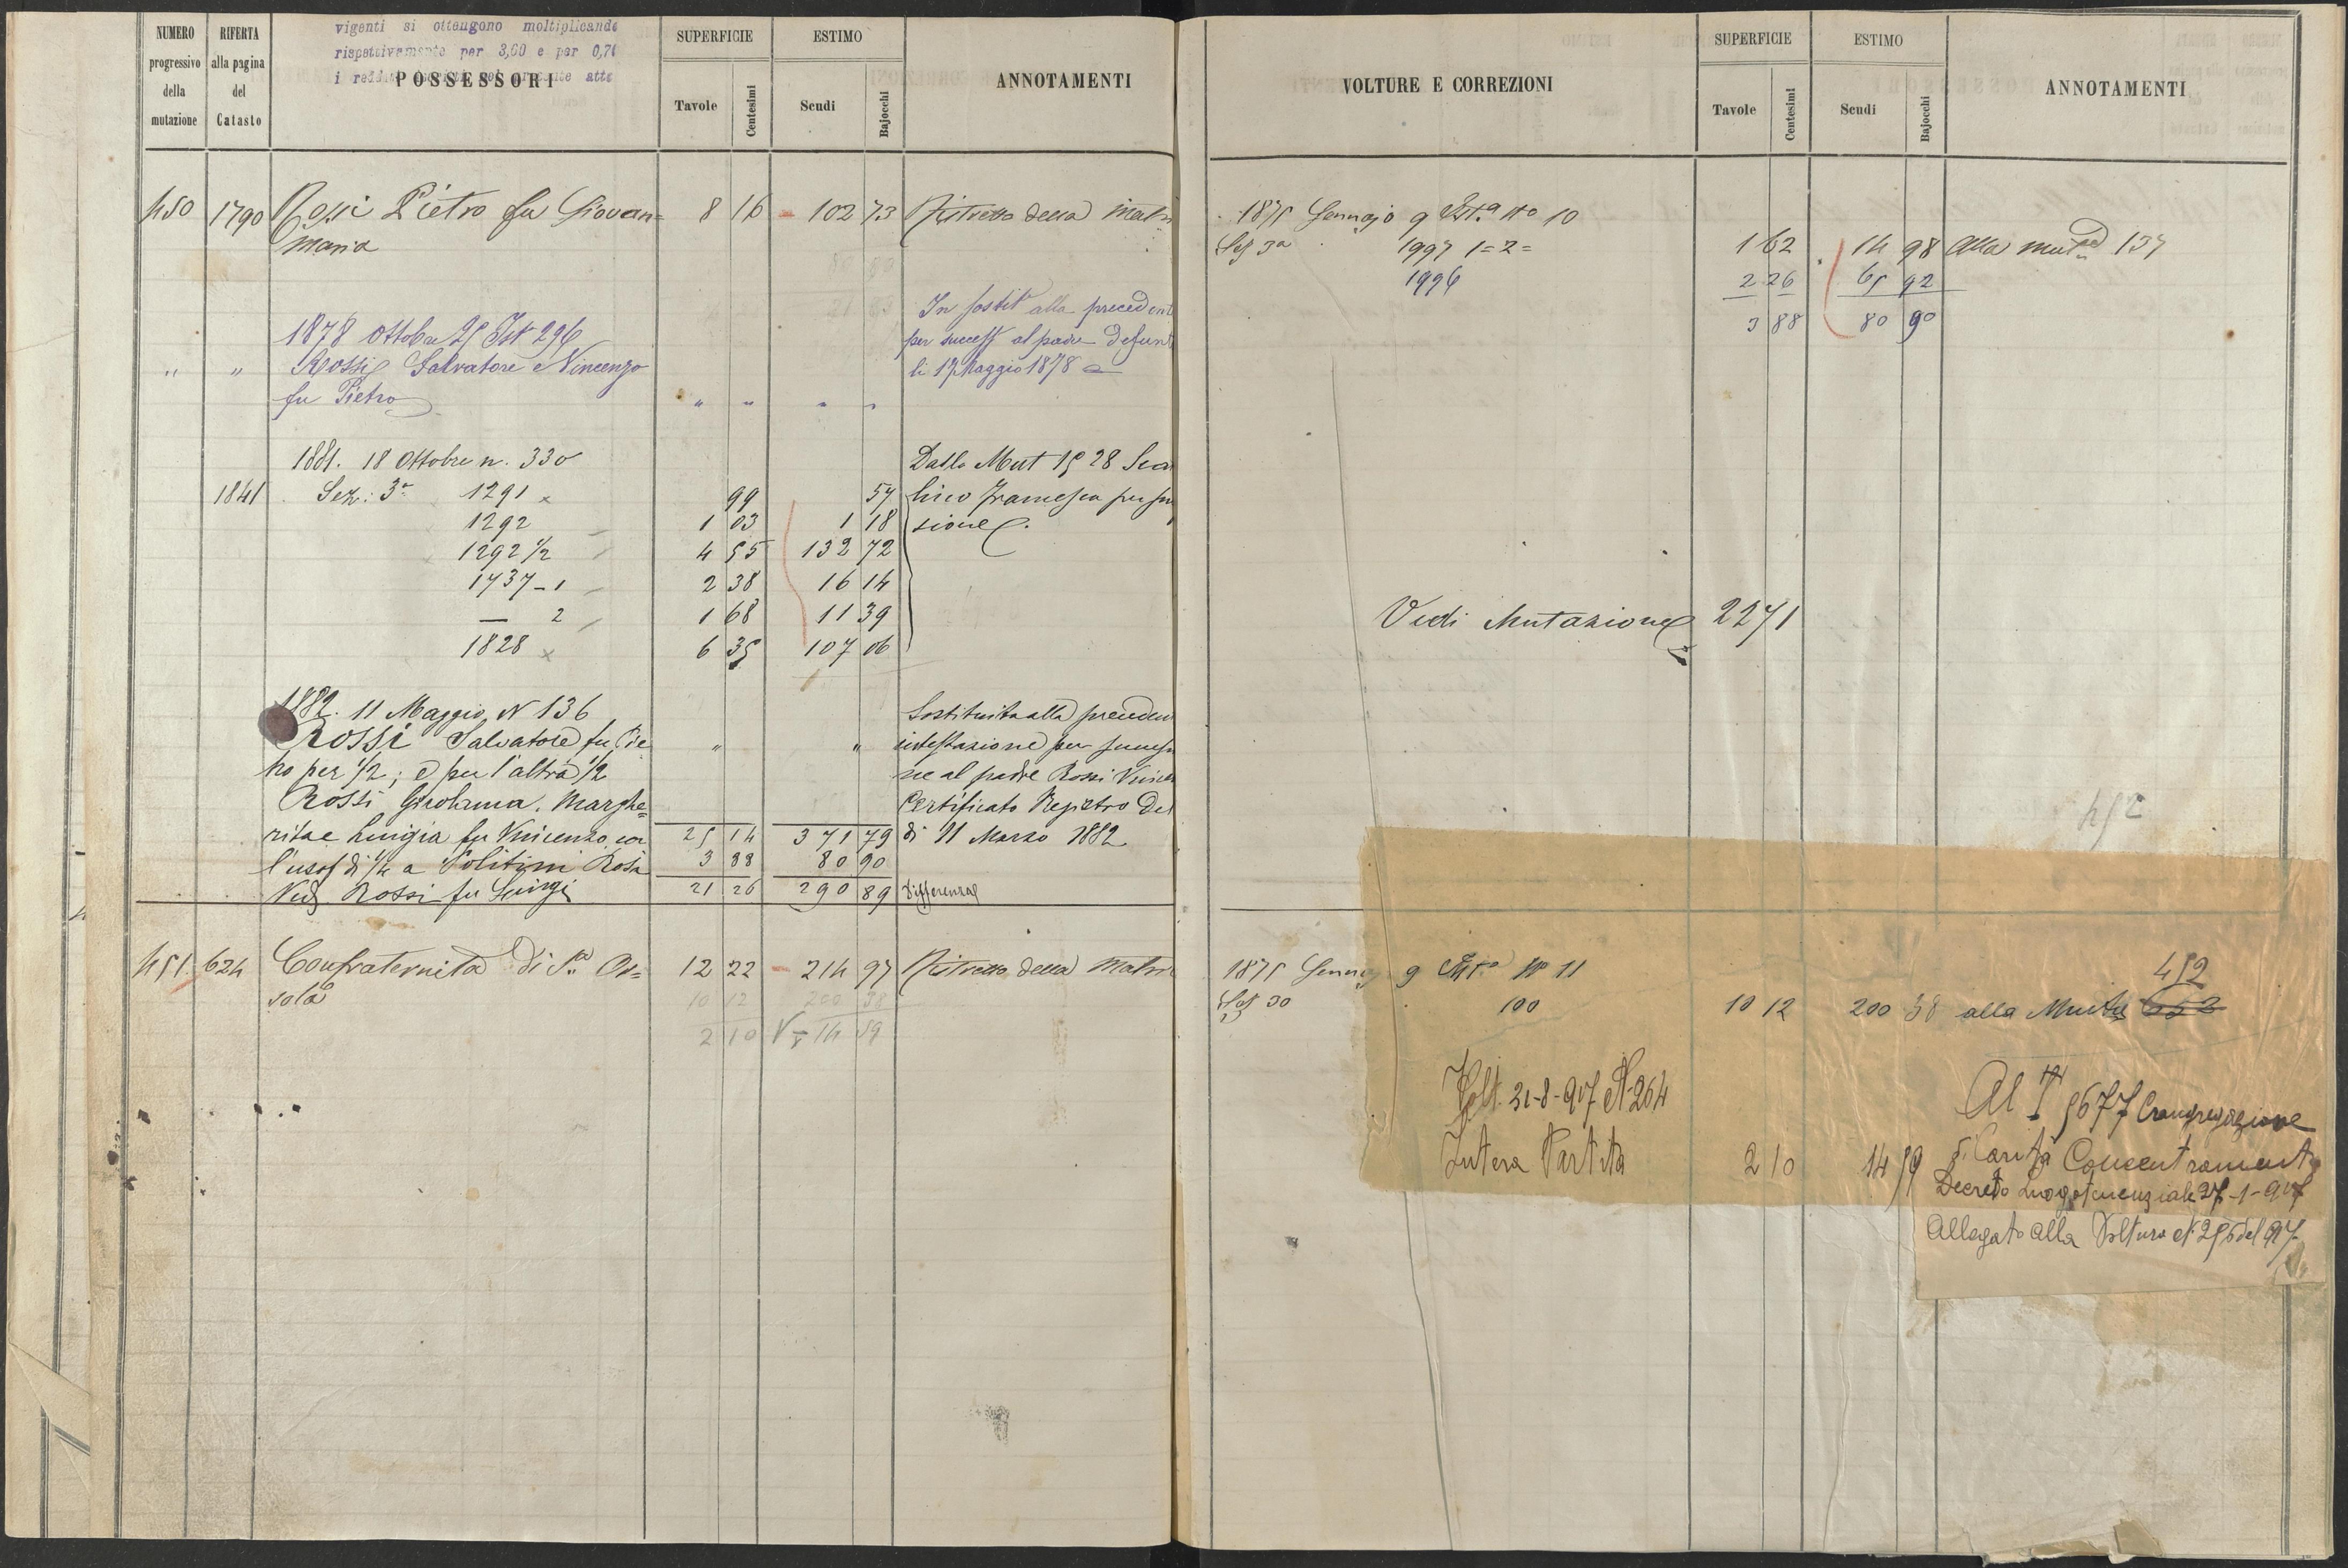 NUMERO progressivo della mutazione
RIFERTA alla pagina del Catasto
vigenti si ottengono moltiplicando
rispettivamente per 3,60 e per 0,71
i redditi
POSSESSORI
SUPERFICIE Tavole Centesimi
ESTIMO Scudi Bajocchi
ANNOTAMENTI
450 1790 Rossi Pietro fu Giovan= 8 16 102 73 Ristretto della Matri
Maria
1878 Ottobre 25 Ist 296
" " Rossi Salvatore e Vincenzo
fu Pietro " " " "
In sostit alla precedent
per success al padre defunt
li 17 Maggio 1878
1881. 18 Ottobre n. 330 Dalla Mut 1528
1841 Sez: 3ª 1291 99 57
1292 1 03 1 18 sione
1292 1/2 4 55 132 72
1737-1 2 38 16 14
— 2 1 68 11 39
1828 6 35 107 06
1882. 11 Maggio N 136 Sostituita alla preceden
Rossi Salvatore fu Pie " " intestazione per success
tro per 1/2; e per l'altra 1/2 ne al padre Rossi Vincen
Rossi Girolama, Marghe= Certificato Registro del
rita e Luigia fu Vincenzo, con 25 14 371 79 di 11 Marzo 1882
l'usof di 1/4 a Politini Rosa 3 88 80 90
Ved. Rossi fu Luigi 21 26 290 89 Differenza
451 624 Confraternita di S.a Or= 12 22 214 97 Ristretto della Matri
sola 10 12 200 38
2 10 14 59
VOLTURE E CORREZIONI
SUPERFICIE Tavole Centesimi
ESTIMO Scudi Bajocchi
ANNOTAMENTI
1875 Gennajo 9 Ist.a No 10
Sez 3a 1997 1=2= 1 62 14 98 Alla mut.ne 137
1996 2 26 65 92
3 88 80 90
Vedi Mutazione 2271
452
1875 Genna 9 Ist.a No 11 452
Sez 3a 100 10 12 200 38 alla Mutaz 652
Volt. 31-8-917 N. 264 Al 5677 Congregazione
Intera Partita 2 10 14 59 di Carità Concentramento
Decreto Luogotenenziale 27-1-917
Allegato alla Voltura N. 256 del 917